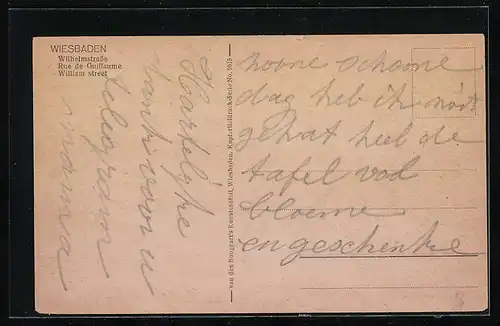 WIESBADEN
Wilhelmstraße
Rue de Guillaume
William street
Hartelijke
dank voor u
telegram
mama
van den Boogaart's Kunstanstalt, Wiesbaden, Kupfertiefdruck-Serie No. 7075
schoone
dag heb ik nooit
gehat heel de
tafel vod
bloeme
en geschenke
8